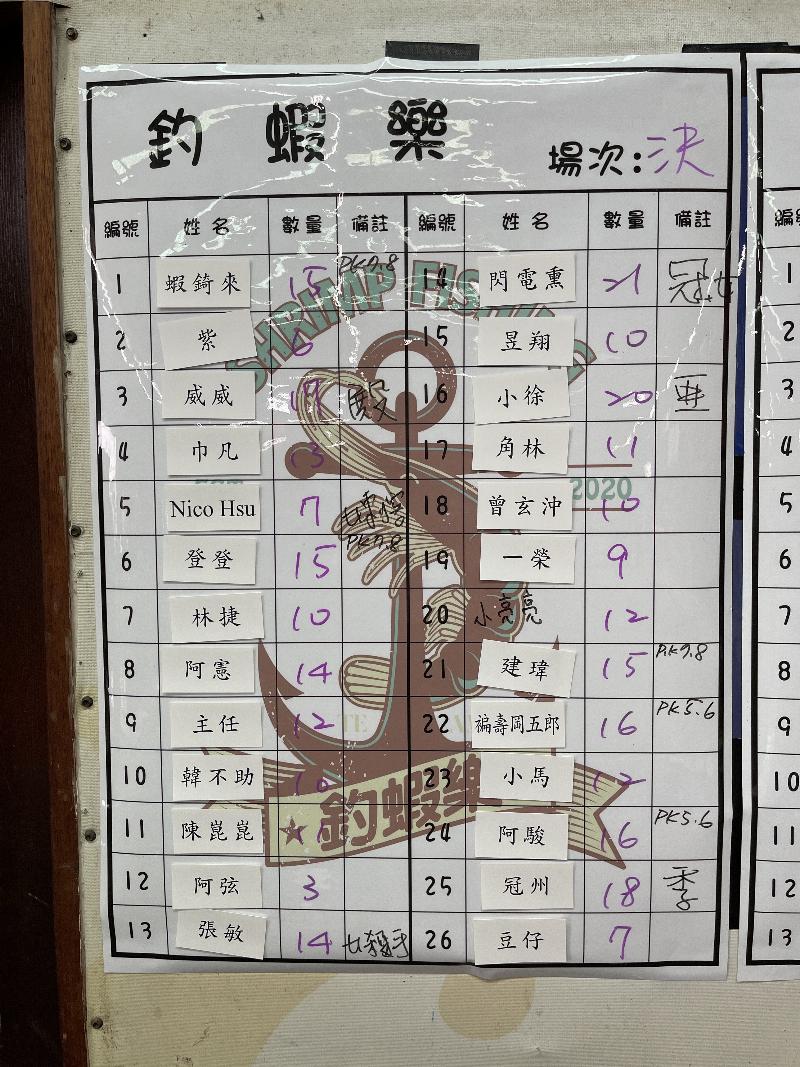 釣 蝦 樂
場次:決
編號 姓名 數量 備註 編號 姓名 數量 備註
1 蝦錡來 15 PK7.8 14 閃電熏 21 冠
2 紫 6 15 昱翔 10
3 威威 17 殿 16 小徐 20 亜
4 巾凡 13 17 角林 11
5 Nico Hsu 7 18 曾玄沖 10
6 登登 15 PK7.8 19 一榮 9
7 林捷 10 20 小亮亮 12
8 阿憲 14 21 建瑋 15 PK7.8
9 主任 12 22 褊壽岡五郎 16 PK5.6
10 韓不助 10 23 小馬 12
11 陳崑崑 11 24 阿駿 16 PK5.6
12 阿弦 3 25 冠州 18 季
13 張敏 14 女殺手 26 豆仔 7
SHRIMP FISHING
2020
釣蝦樂
編號
1
2
3
4
5
6
7
8
9
10
11
12
13